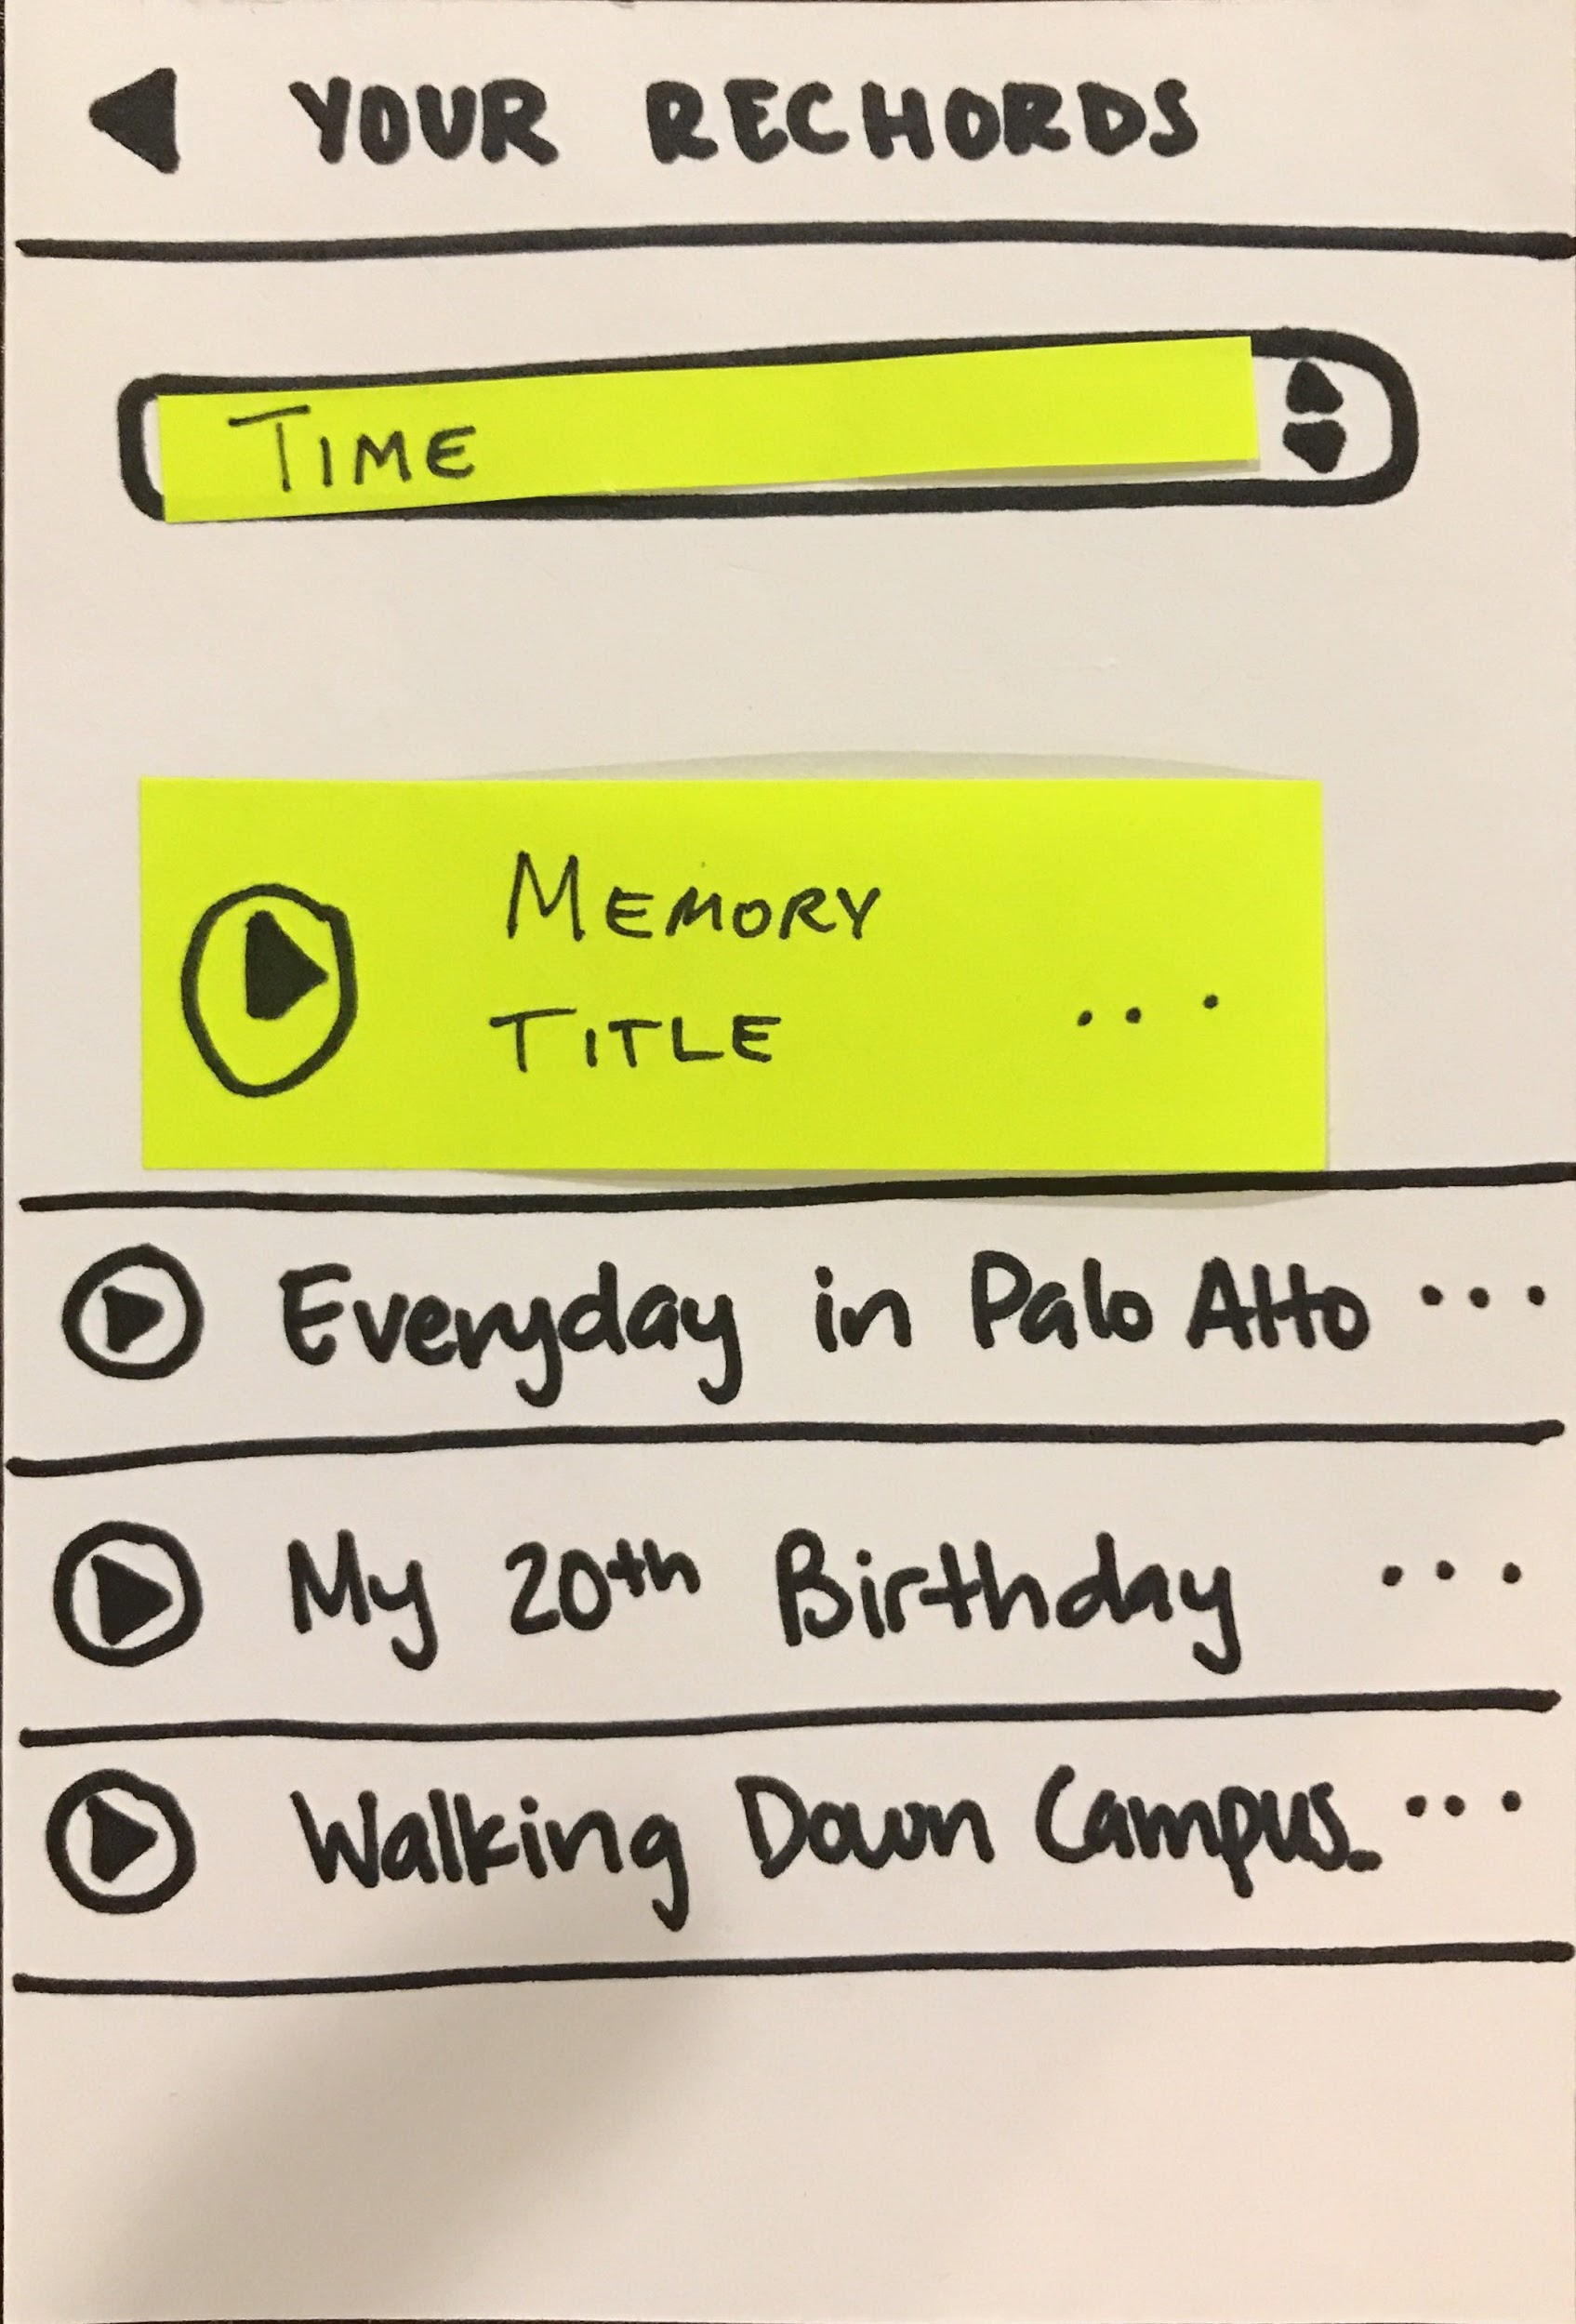 YOUR RECHORDS
TIME
MEMORY
TITLE
...
Everyday in Palo Alto ...
My 20th Birthday ...
Walking Down Campus. ...